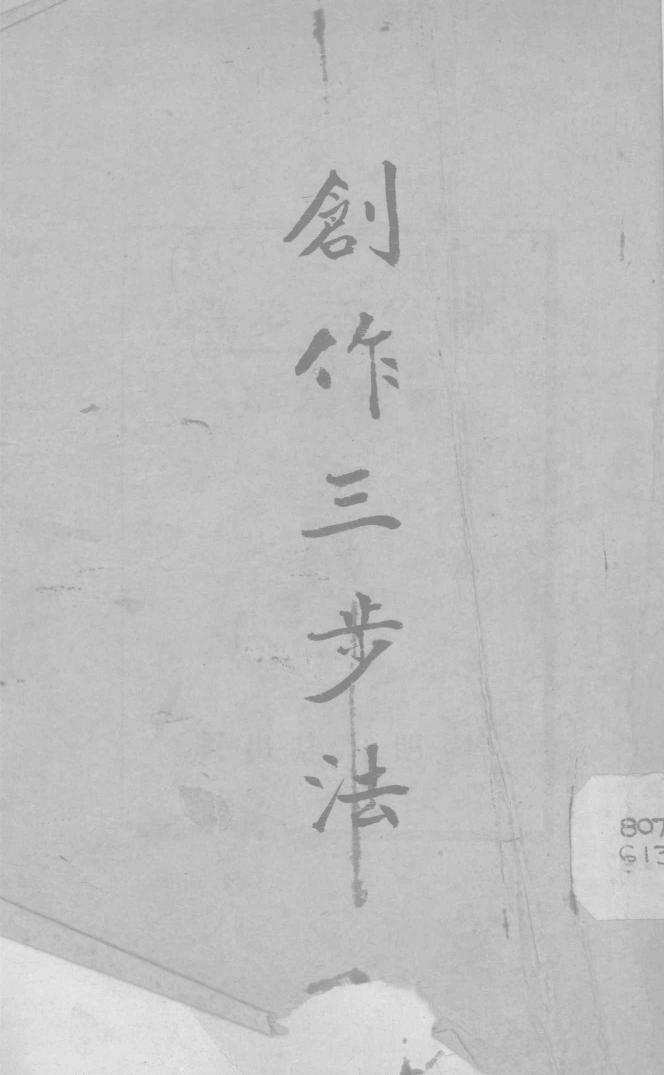 創作三步法
807
613